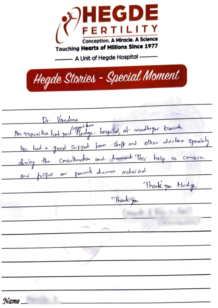 HEGDE
FERTILITY
Conception. A Miracle. A Science
Touching Hearts of Millions Since 1977
A Unit of Hegde Hospital
Hegde Stories - Special Moment
Dr Vandana
hospital, at branch
We had a good support from staff and other doctors specially
during the consultation and This help to conceive
and our parents dream achieved
Thank you Hegde.
Thank you
Name